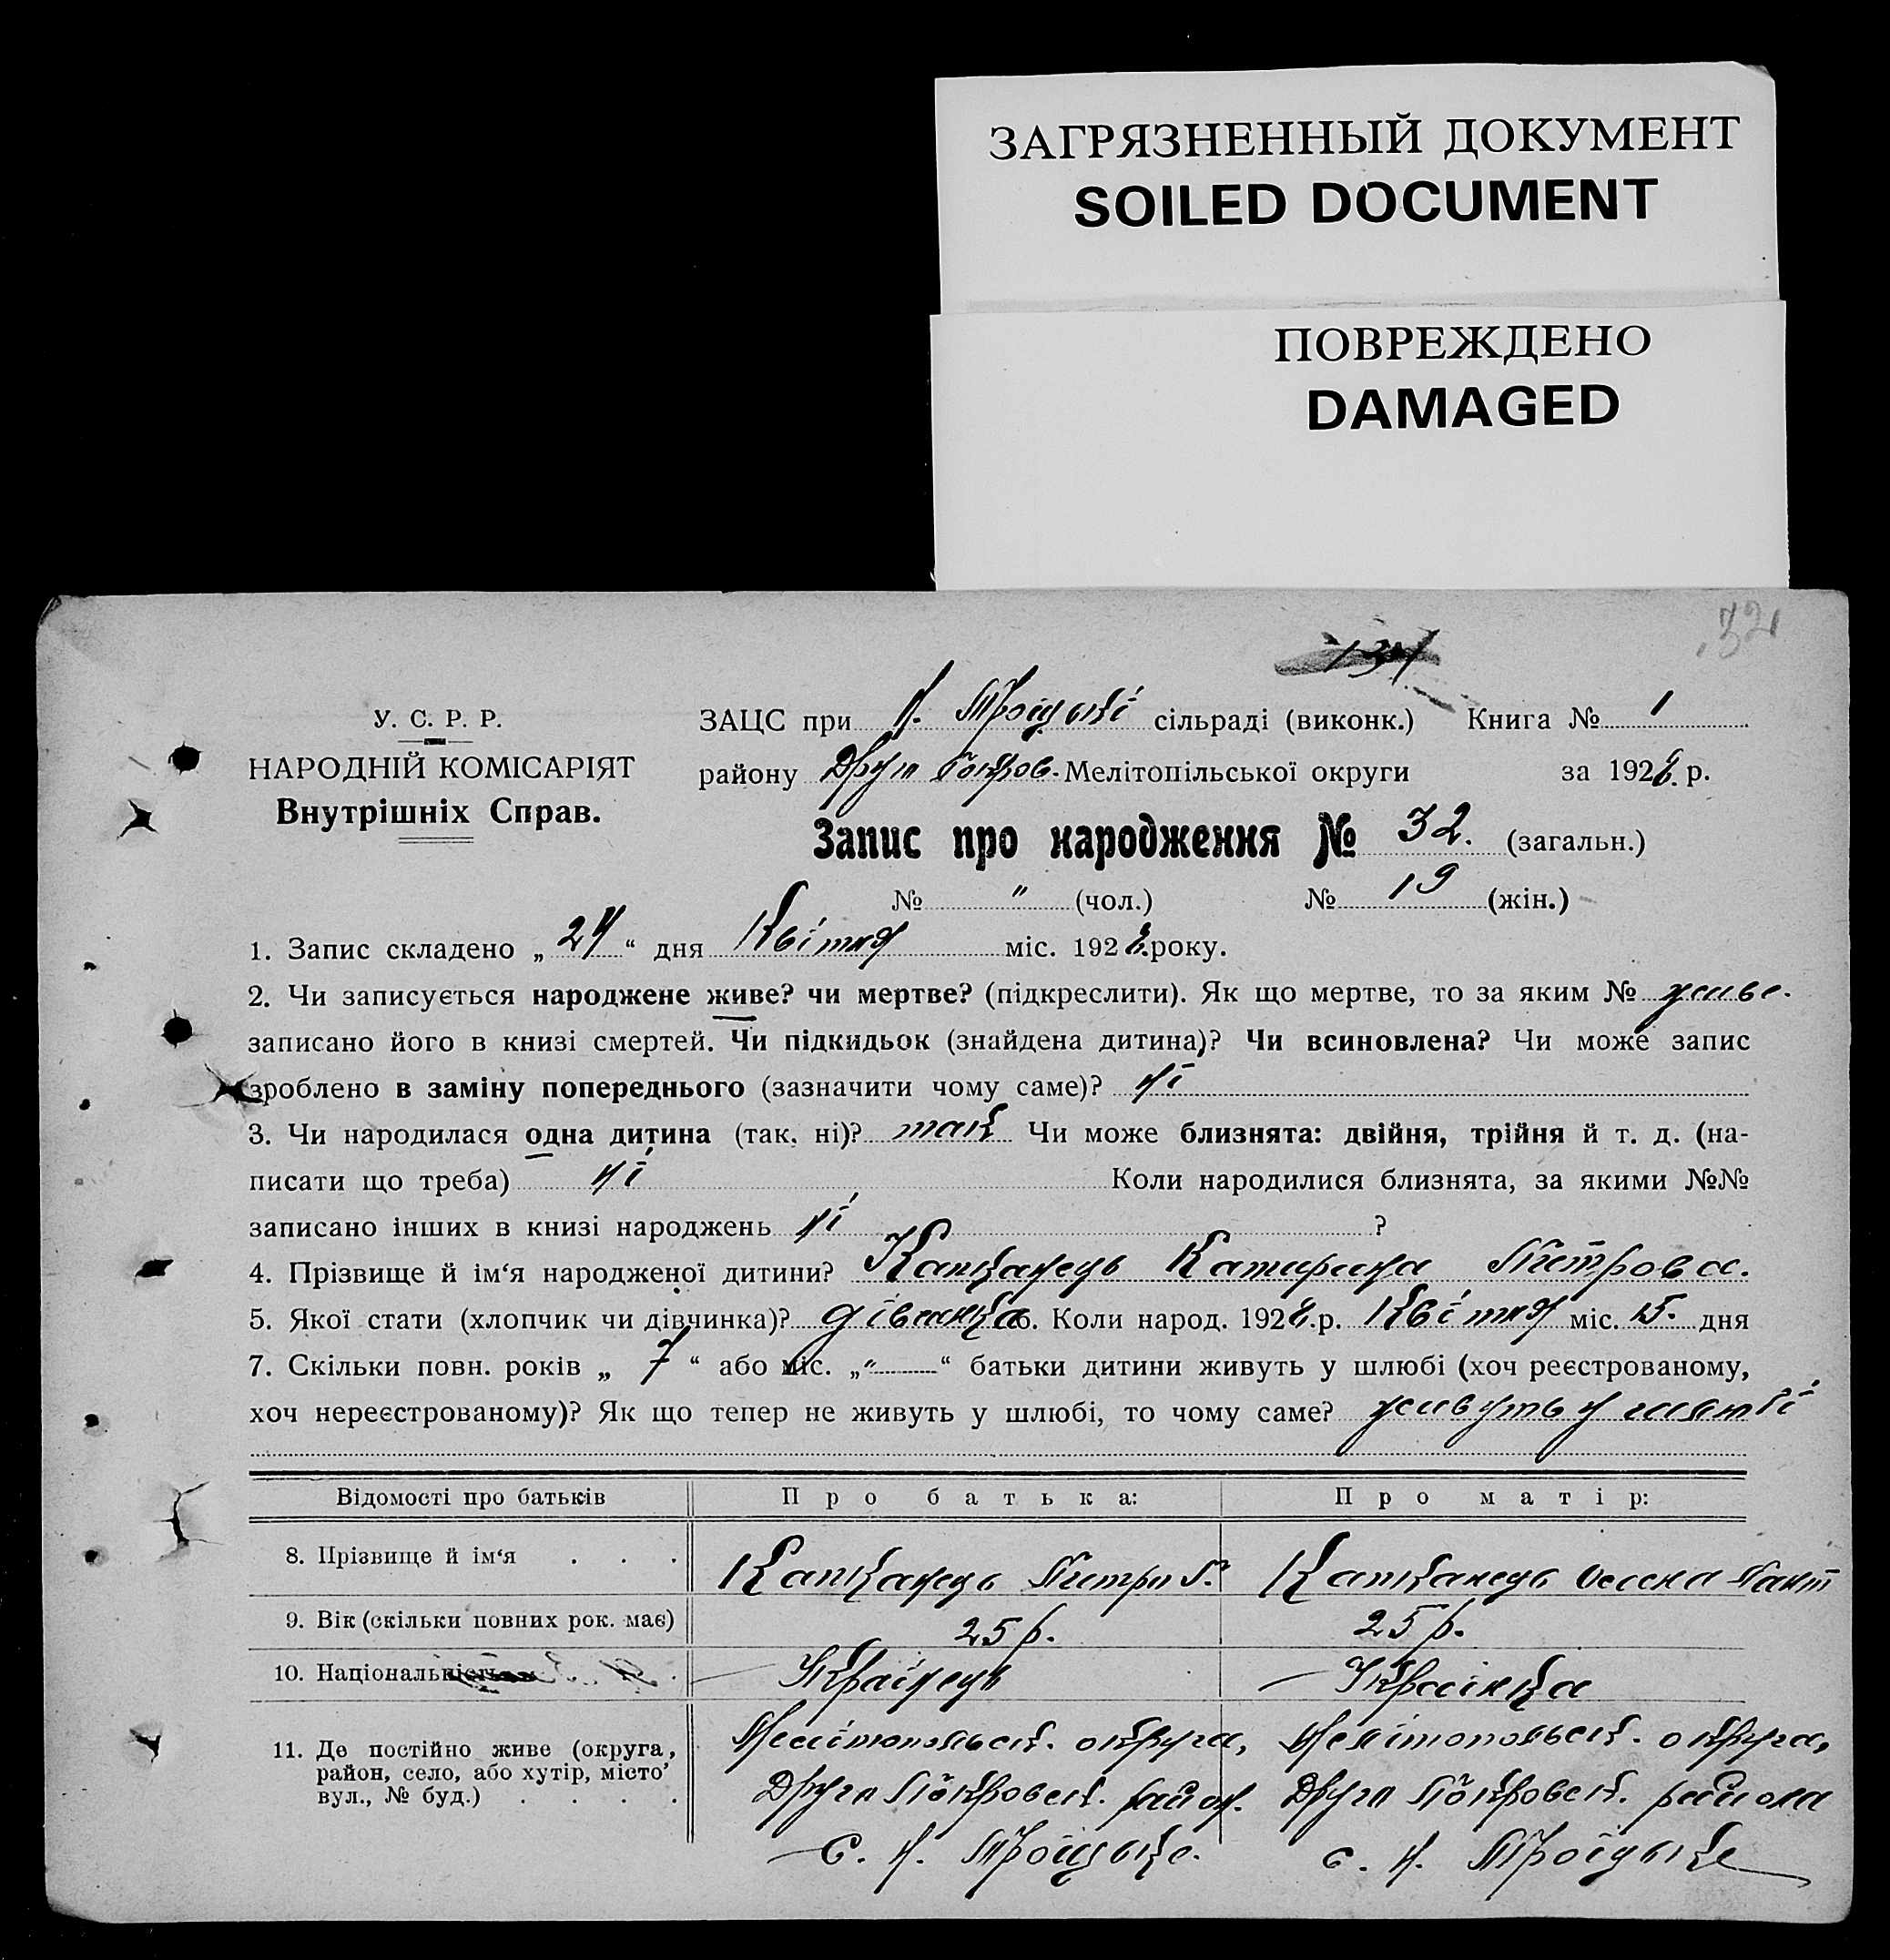 ЗАГРЯЗНЕННЫЙ ДОКУМЕНТ
SOILED DOCUMENT
ПОВРЕЖДЕНО
DAMAGED
32
131
У. С. Р. Р.
НАРОДНІЙ КОМІСАРІЯТ
Внутрішніх Справ.
ЗАЦС при Н. Троїцькі сільраді (виконк.) Книга № 1
району Друго Покров. Мелітопільської округи за 1928 р.
Запис про народження № 32. (загальн.)
№ " (чол.) № 19 (жін.)
1. Запис складено „ 24 “ дня Квітня міс. 1928 року.
2. Чи записується народжене живе? чи мертве? (підкреслити). Як що мертве, то за яким № живе.
записано його в книзі смертей. Чи підкидьок (знайдена дитина)? Чи всиновлена? Чи може запис
зроблено в заміну попереднього (зазначити чому саме)? ні
3. Чи народилася одна дитина (так, ні)? так Чи може близнята: двійня, трійня й т. д. (на-
писати що треба) ні Коли народилися близнята, за якими №№
записано інших в книзі народжень ні ?
4. Прізвище й ім‘я народженої дитини? Капканець Катирина Петрова.
5. Якої стати (хлопчик чи дівчинка)? дівчинка 6. Коли народ. 1928 р. Квітня міс. 15. дня
7. Скільки повн. років „ 7 “ або міс. „ " “ батьки дитини живуть у шлюбі (хоч реєстрованому,
хоч нереєстрованому)? Як що тепер не живуть у шлюбі, то чому саме? живуть у
Відомості про батьків Про батька: Про матір:
8. Прізвище й ім‘я . . . Капканець Петро Капканець
9. Вік (скільки повних рок. має) 25 р. 25 р.
10. Національність Українець Українка
11. Де постійно живе (округа,
район, село, або хутір, місто
вул., № буд.) . . . .
Мелітопольськ. округа,
Друго Покровськ. район.
с. Н. Троїцьке.
Мелітопольськ. округа,
Друго Покровськ. района
с. Н. Троїцьке